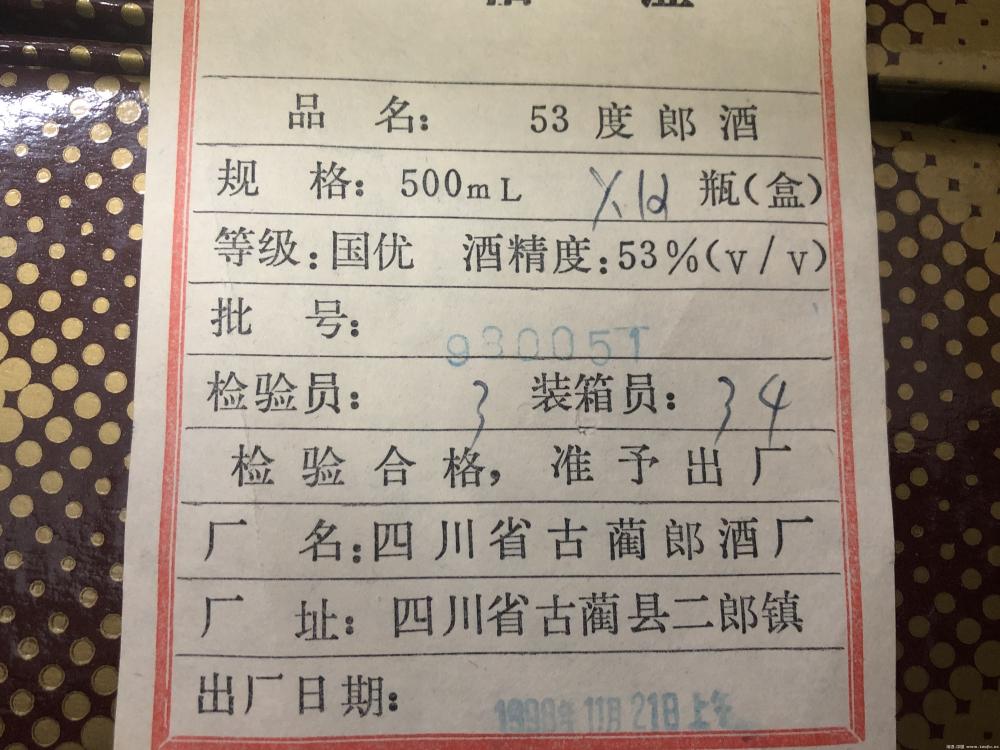 品 名： 53 度 郎 酒
规 格： 500mL X12 瓶(盒)
等级：国优 酒精度：53%(v/v)
批 号： 930051
检验员： 3 装箱员： 34
检 验 合 格， 准 予 出 厂
厂 名：四 川 省 古 蔺 郎 酒 厂
厂 址： 四川省古蔺县二郎镇
出厂日期： 11月21日上午